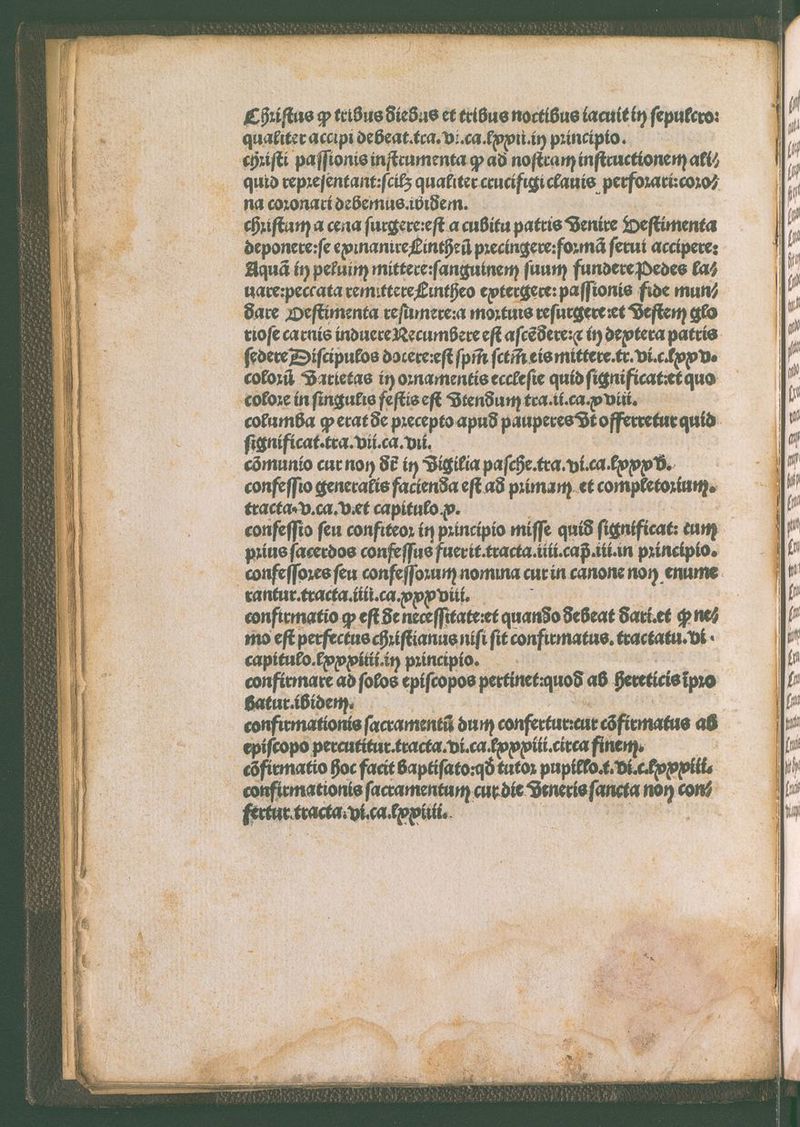 Chriſtus ꝙ tribus diebus et tribus noctibus iacuit in ſepulcro:
qualiter accipi debeat.tra.vi.ca.lxxii.in principio.
chriſti paſſionis inſtrumenta ꝙ ad noſtram inſtructionem ali⸗
quid repreſentant:ſcilꝫ qualiter crucifigi clauis perforari:coro⸗
na coronari debemus.ibidem.
chriſtum a cena ſurgere:eſt a cubitu patris venire Veſtimenta
deponere:ſe exinanire Lintheū precingere:formā ſerui accipere:
Aquā in peluim mittere:ſanguinem ſuum fundere Pedes la⸗
uare:peccata remittere Lintheo extergere:paſſionis fide mun⸗
dare Veſtimenta reſumere:a mortuis reſurgere:et veſtem glo
rioſe carnis induere Recumbere eſt aſcēdere:⁊ in dextera patris
ſedere Diſcipulos docere:eſt ſpm̄ ſctm̄ eis mittere.tr.vi.c.lxxv.
colorū varietas in ornamentis eccleſie quid ſignificat:et quo
colore in ſingulis feſtis eſt vtendum tra.ii.ca.xviii.
columba ꝙ erat de precepto apud pauperes vt offerretur quid
ſignificat.tra.vii.ca.vii.
cōmunio cur non dr̄ in vigilia paſche.tra.vi.ca.lxxxv.
confeſſio generalis facienda eſt ad primam et completorium.
tracta.v.ca.v.et capitulo.x.
confeſſio ſeu confiteor in principio miſſe quid ſignificat: cum
prius ſacerdos confeſſus fuerit.tracta.iiii.cap̄.iii.in principio.
confeſſores ſeu confeſſorum nomina cur in canone non enume
rantur.tracta.iiii.ca.xxxviii.
confirmatio ꝙ eſt de neceſſitate:et quando debeat dari.et ꝙ ne⸗
mo eſt perfectus chriſtianus niſi ſit confirmatus. tractatu.vi.
capitulo.lxxxiiii.in principio.
confirmare ad ſolos epiſcopos pertinet:quod ab hereticis īpro
batur.ibidem.
confirmationis ſacramentū dum confertur:cur cōfirmatus ab
epiſcopo percutitur.tracta.vi.ca.lxxxiiii.circa finem.
cōfirmatio hoc facit baptiſato:qd̄ tutor pupillo.t.vi.c.lxxxiiii.
confirmationis ſacramentum cur die veneris ſancta non con⸗
fertur.tracta.vi.ca.lxxiiii.